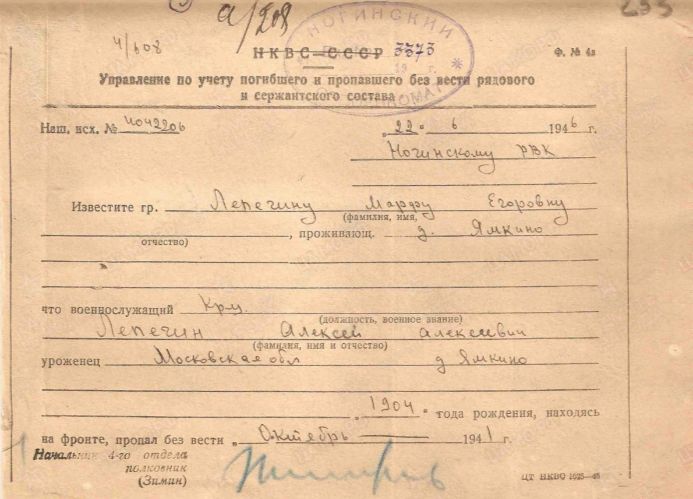 а/208
233
4/608
НОГИНСКИЙ
НКВС СССР 3373
Ф. № 4а
Управление по учету погибшего и пропавшего без вести рядового
и сержантского состава
Наш. исх. № 4042206 „22" 6 1946 г.
Ногинскому РВК
Известите гр. Лепегину Марфу Егоровну
(фамилия, имя,
отчество) , проживающ. д. Ямкино
что военнослужащий Кр-ц.
(должность, военное звание)
Лепегин Алексей Алексеевич
(фамилия, имя и отчество)
уроженец Московская обл д Ямкино
„1904" года рождения, находясь
на фронте, пропал без вести „Октябрь 1941 г.
Начальник 4-го отдела
полковник
(Зимин)
ЦТ НКВО 1625—45